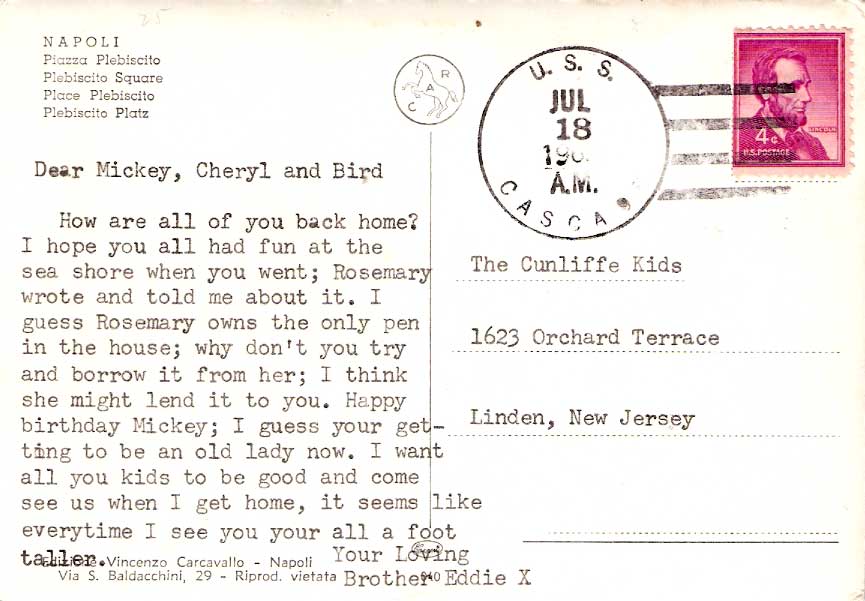 25
NAPOLI
Piazza Plebiscito
Plebiscito Square
Place Plebiscito
Plebiscito Platz
C A R
U. S. S.
JUL
18
A.M.
4¢
LINCOLN
U.S. POSTAGE
Dear Mickey, Cheryl and Bird
How are all of you back home?
I hope you all had fun at the
sea shore when you went; Rosemary
wrote and told me about it. I
guess Rosemary owns the only pen
in the house; why don't you try
and borrow it from her; I think
she might lend it to you. Happy
birthday Mickey; I guess your get-
ting to be an old lady now. I want
all you kids to be good and come
see us when I get home, it seems like
everytime I see you your all a foot
taller.
Your Loving
Brother Eddie X
The Cunliffe Kids
1623 Orchard Terrace
Linden, New Jersey
Edizione Vincenzo Carcavallo - Napoli
Via S. Baldacchini, 29 - Riprod. vietata